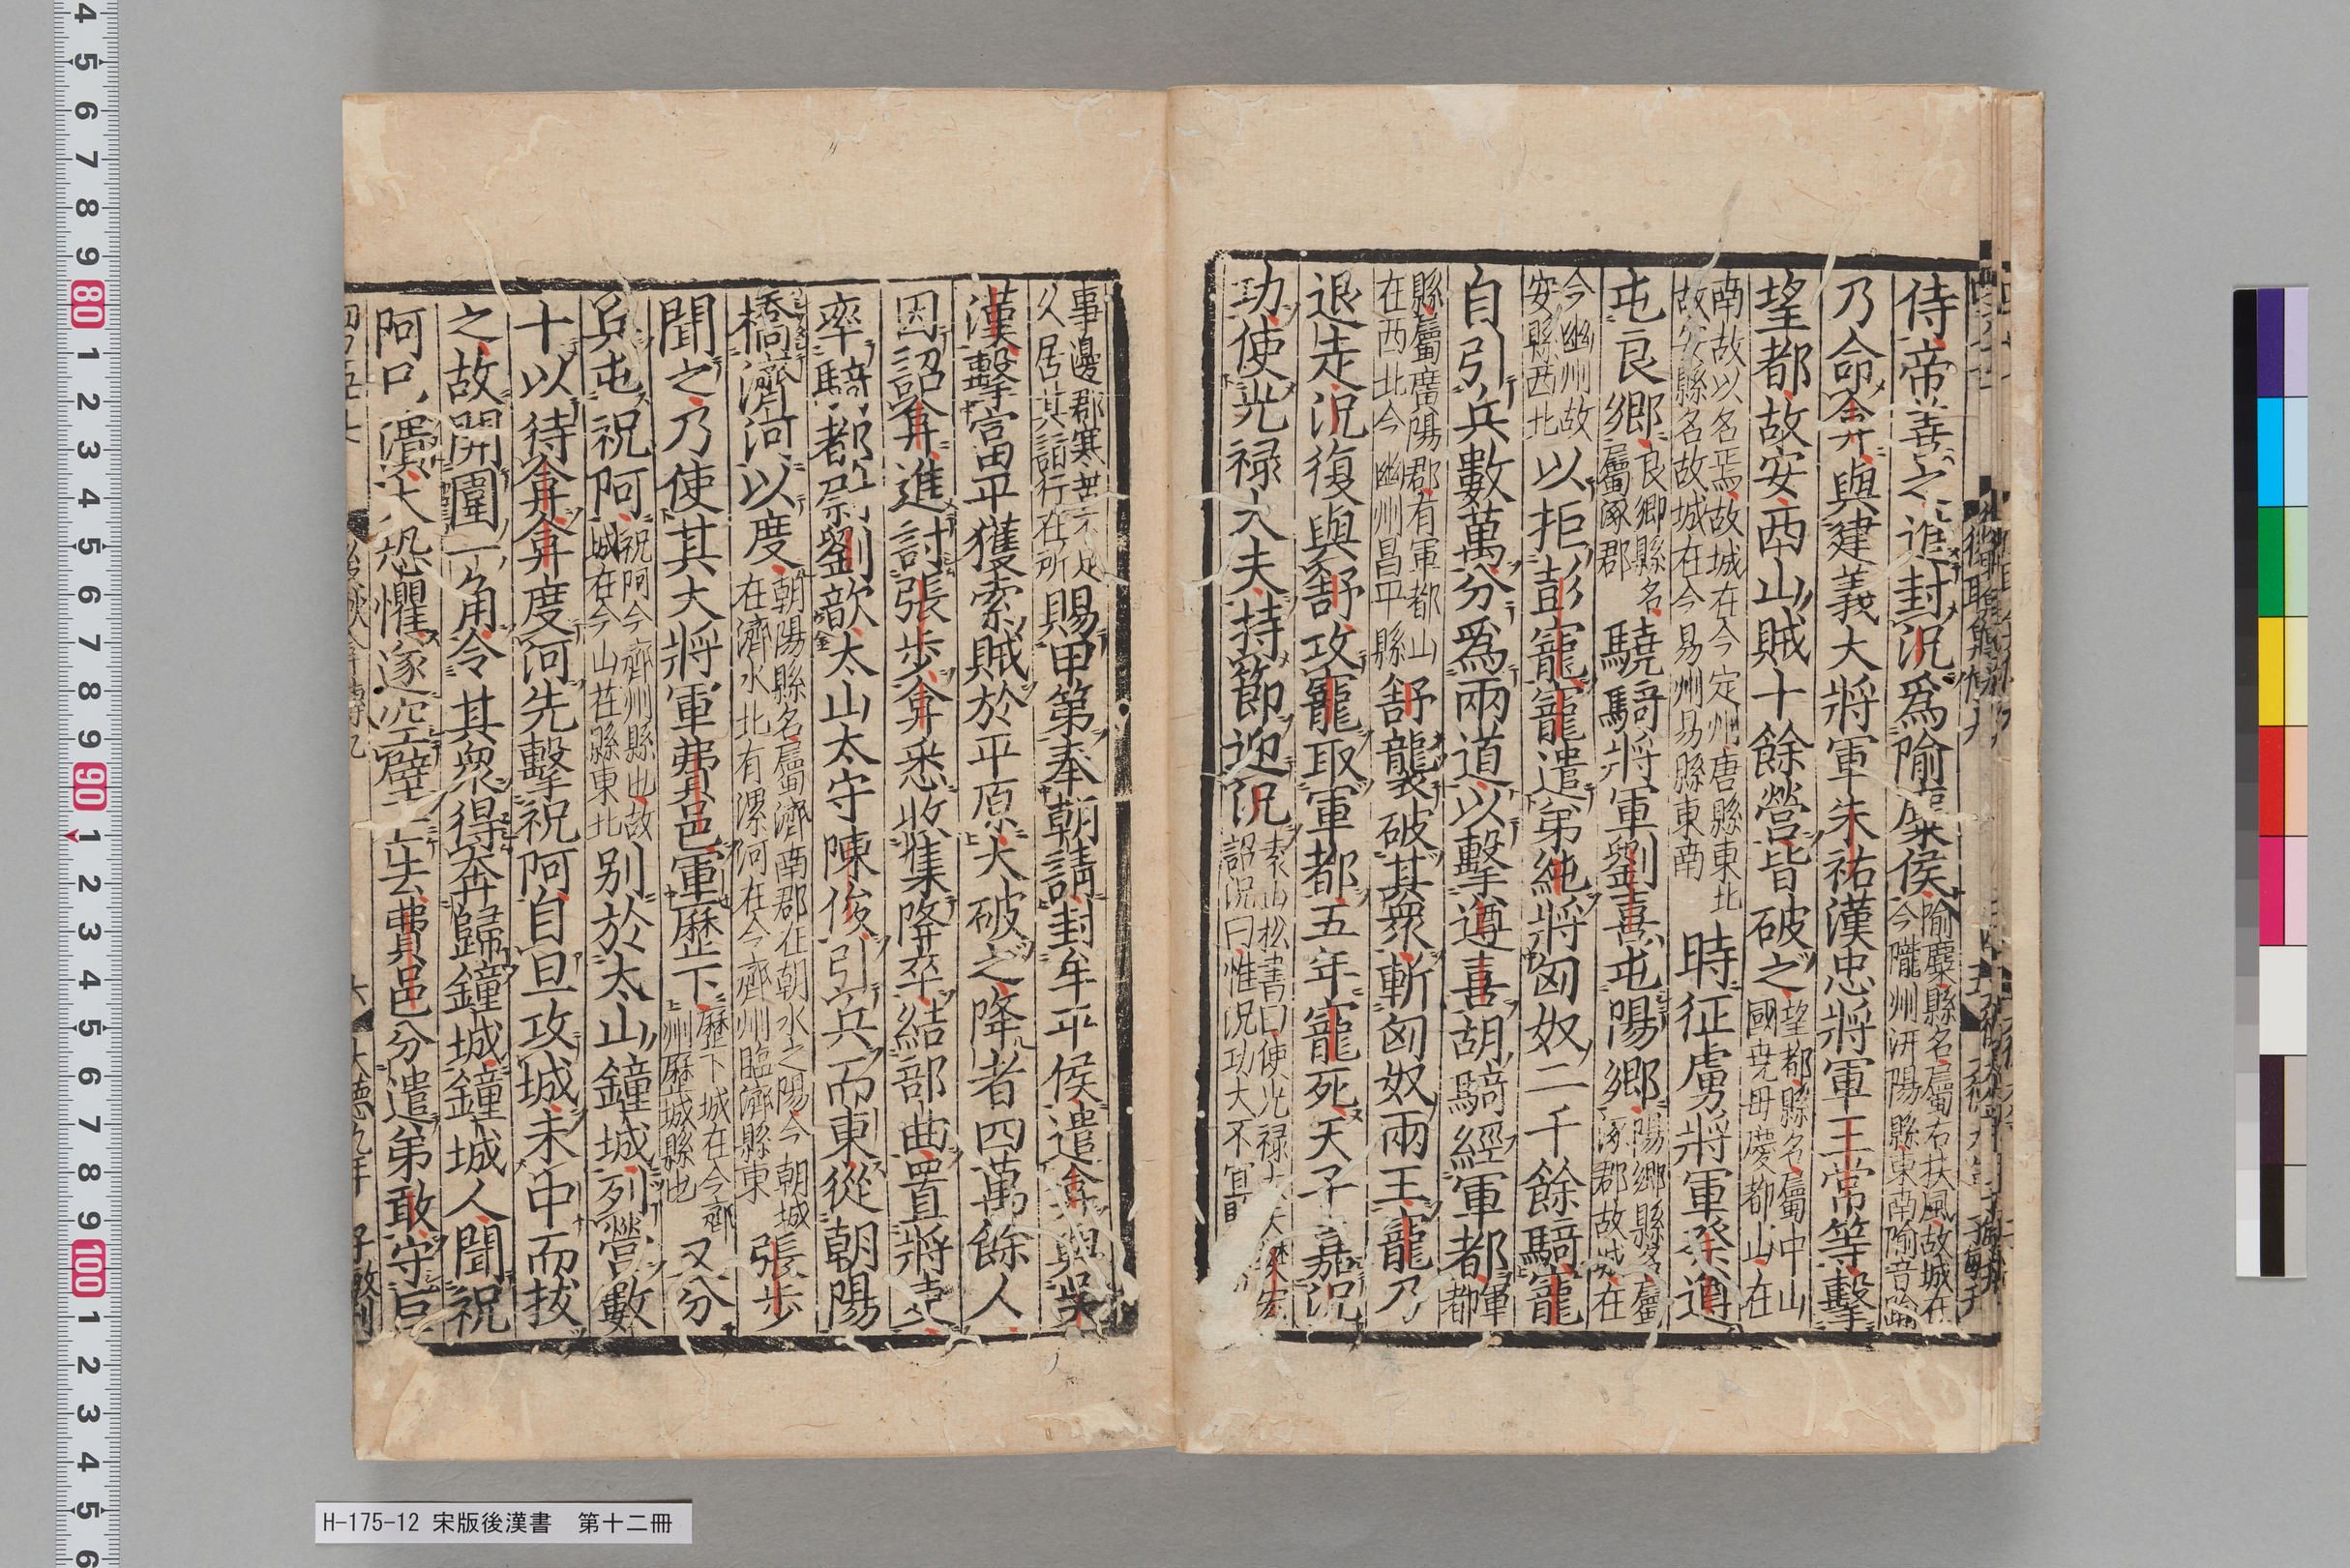 侍帝善之進封況爲隃麋侯隃麋縣名屬右扶風故城在今隴州汧陽縣東南隃音踰
乃命弇與建義大將軍朱祐漢忠將軍王常等擊
望都故安西山賊十餘營皆破之望都縣名屬中山國堯母慶都山在
南故以名焉故城在今定州唐縣東北故安縣名故城在今易州易縣東南時征虜將軍祭遵
屯良鄉良鄉縣名屬涿郡驍騎將軍劉喜屯陽鄉陽鄉縣名屬涿郡故城在
今幽州故安縣西北以拒彭寵寵遣弟純將匈奴二千餘騎寵
自引兵數萬分爲兩道以擊遵喜胡騎經軍都軍都
縣屬廣陽郡有軍都山在西北今幽州昌平縣舒襲破其衆斬匈奴兩王寵乃
退走況復與舒攻寵取軍都五年寵死天子嘉況
功使光祿大夫持節迎況袁山松書曰使光祿大夫樊宏詔況曰惟況功大不宜
事邊郡寒苦不足久居其詣行在所賜甲第奉朝請封牟平侯遣弇與吳
漢擊富平獲索賊於平原大破之降者四萬餘人
因詔弇進討張步弇悉收集降卒結部曲置將吏
率騎都尉劉歆太山太守陳俊引兵而東從朝陽
橋濟河以度朝陽縣名屬濟南郡在朝水之陽今朝城在濟水北有漯河在今齊州臨濟縣東張步
聞之乃使其大將軍費邑軍歷下歷下城在今齊州歷城縣也又分
兵屯祝阿祝阿今齊州縣也故城在今山茌縣東北別於太山鐘城列營數
十以待弇弇度河先擊祝阿自旦攻城未中而拔
之故開圍一角令其衆得奔歸鐘城鐘城人聞祝
阿已潰大恐懼遂空壁亡去費邑分遣弟敢守巨
H-175-12 宋版後漢書 第十二冊